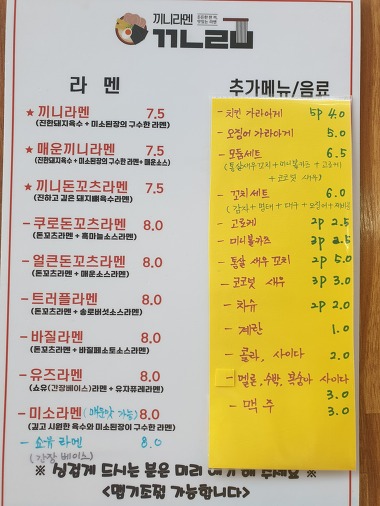 끼니라멘
라 멘
★ 끼니라멘 7.5
(진한돼지육수 + 미소된장의 구수한 라멘)
★ 매운끼니라멘 7.5
(진한돼지육수 + 미소된장의 구수한라멘+매운소스)
★ 끼니돈꼬츠라멘 7.5
(진하고 깊은 돼지뼈육수라멘)
- 쿠로돈꼬츠라멘 8.0
(돈꼬츠라멘 + 흑마늘소스라멘)
- 얼큰돈꼬츠라멘 8.0
(돈꼬츠라멘 + 매운소스라멘)
- 트러플라멘 8.0
(돈꼬츠라멘 + 송로버섯소스라멘)
- 바질라멘 8.0
(돈꼬츠라멘 + 바질페소토소스라멘)
- 유즈라멘 8.0
(쇼유(간장베이스)라멘 + 유자퓨레라멘)
- 미소라멘 (매운맛 가능) 8.0
(깊고 시원한 육수와 미소된장이 구수한 라멘)
- 쇼유 라멘 8.0
(간장 베이스)
추가메뉴/음료
- 치킨 가라아게 5p 4.0
- 오징어 가라아게 5.0
- 모듬세트 6.5
(통살새우꼬치+미니볼카츠+고로케
+ 코코넛 새우)
- 꼬치세트 6.0
- 고로케 2p 2.5
- 미니볼카츠 2.5
- 통살 새우 꼬치 2p 5.0
- 코코넛 새우 3p 3.0
- 차슈 2p 2.0
- 계란 1.0
- 콜라, 사이다 2.0
- 멜론, 수박, 복숭아 사이다
3.0
- 맥 주 3.0
※ 싱겁게 드시는 분은 미리 얘기해 주세요 ※
<면기조절 가능합니다>